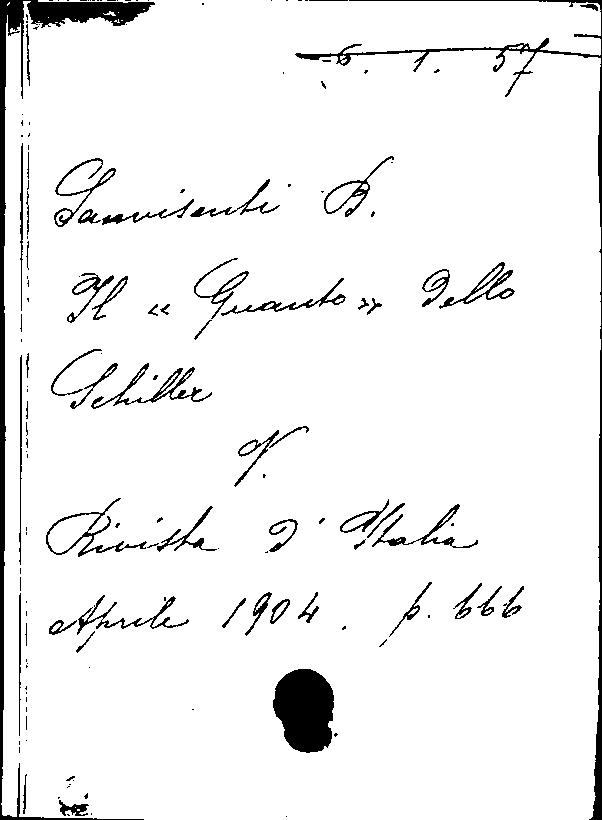 5. 1. 57
Sanvisenti B.
Il « Guanto » dello
Schiller
V.
Rivista d'Italia
Aprile 1904. p. 666